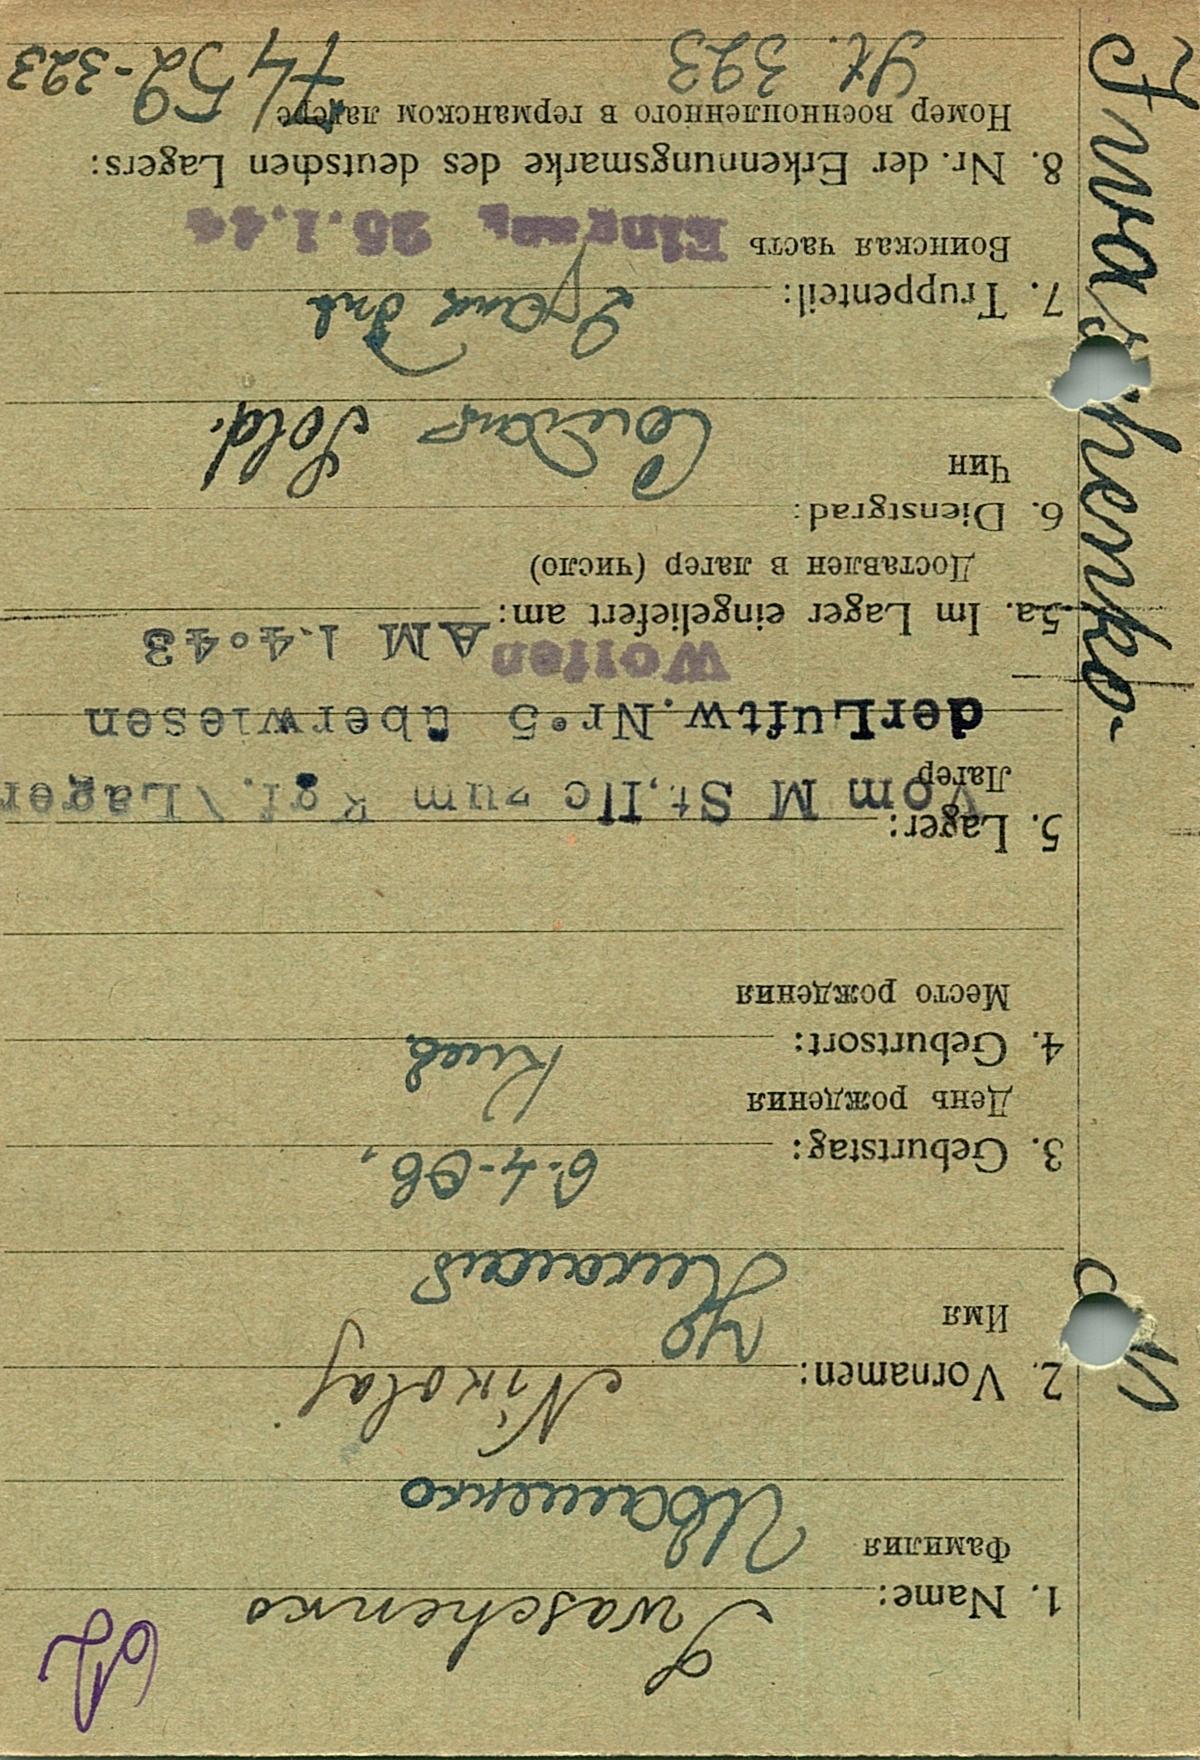 Iwaschenko
1. Name: Iwaschenko
Фамилия Иващенко
Nikolaj
2. Vornamen:
Имя
Николай
3. Geburtstag: 6-4-06,
День рождения
4. Geburtsort: Киев
Место рождения
5. Lager:
Лагер
Vom M St, IIc zum Kgf./Lager
der Luftw. Nr. 5 überwiesen
Worfen
5a. Im Lager eingeliefert am: AM 1.4.43
Доставлен в лагер (число)
6. Dienstgrad:
Чин
Солдат Sold.
7. Truppenteil:
Воинская часть Eingang 25.1.44
8. Nr. der Erkennungsmarke des deutschen Lagers:
Номер военнопленного в германском лагере
St. 323 7452-323